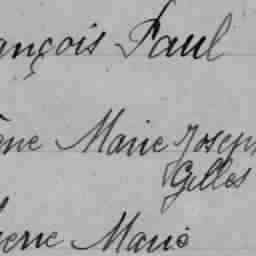 ançois Paul
ène Marie Joseph
Gilles
ierre Marie